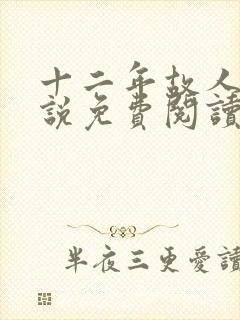 十二年故人
說免費閱讀
半夜三更愛讀